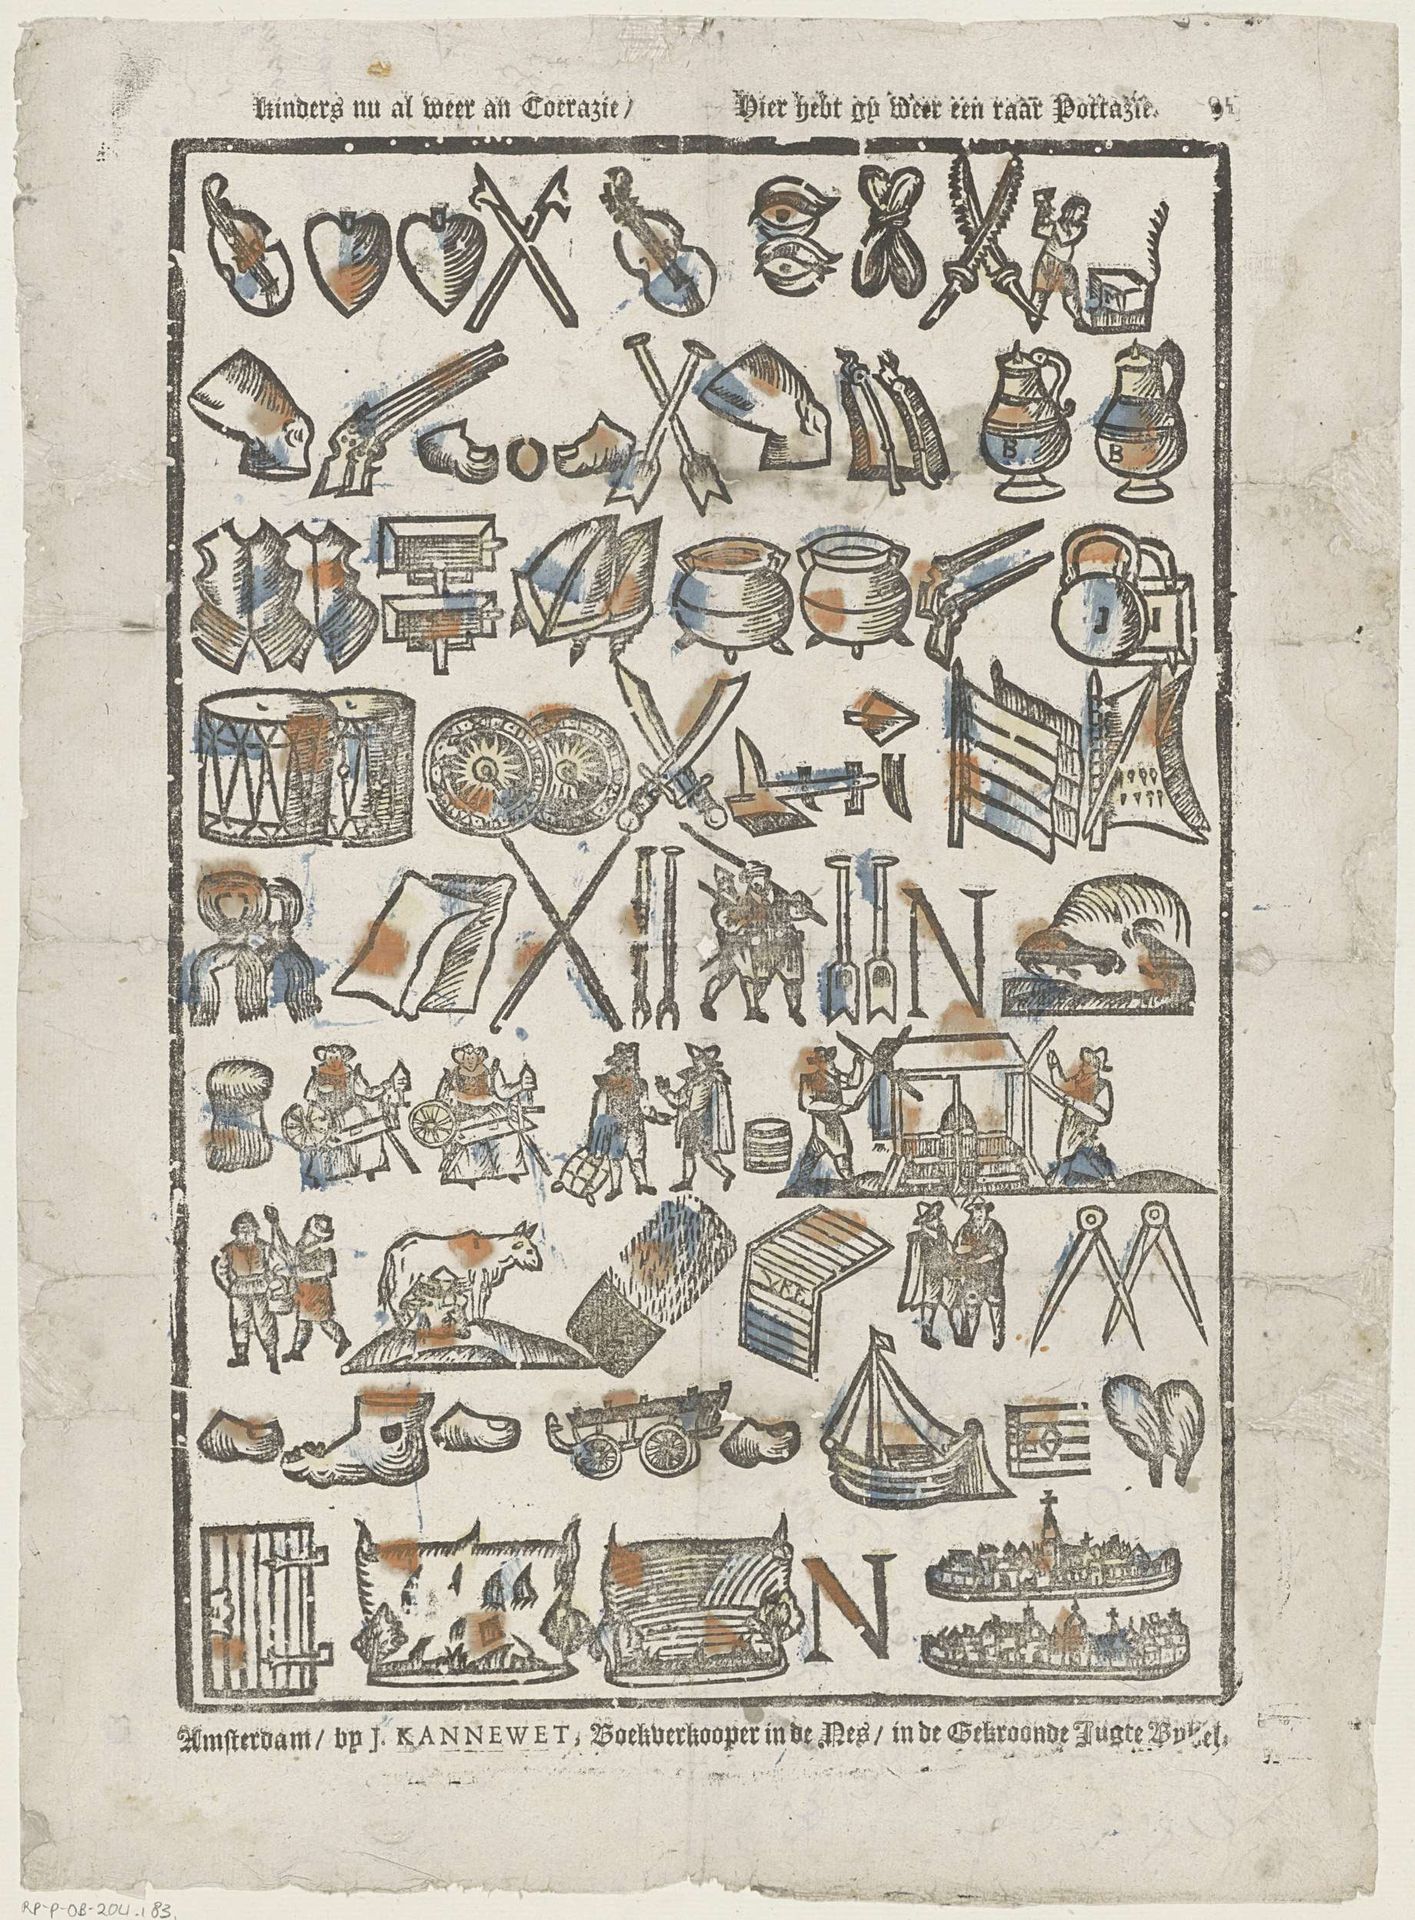 Kinders nu al weer an Coerazie / Hier hebt gy weer een raar Pottazie.
B B
N
N
Amsterdam / by J. KANNEWET, Boekverkooper in de Nes / in de Gekroonde Jugte Bybel.
RP-P-OB-204.183.